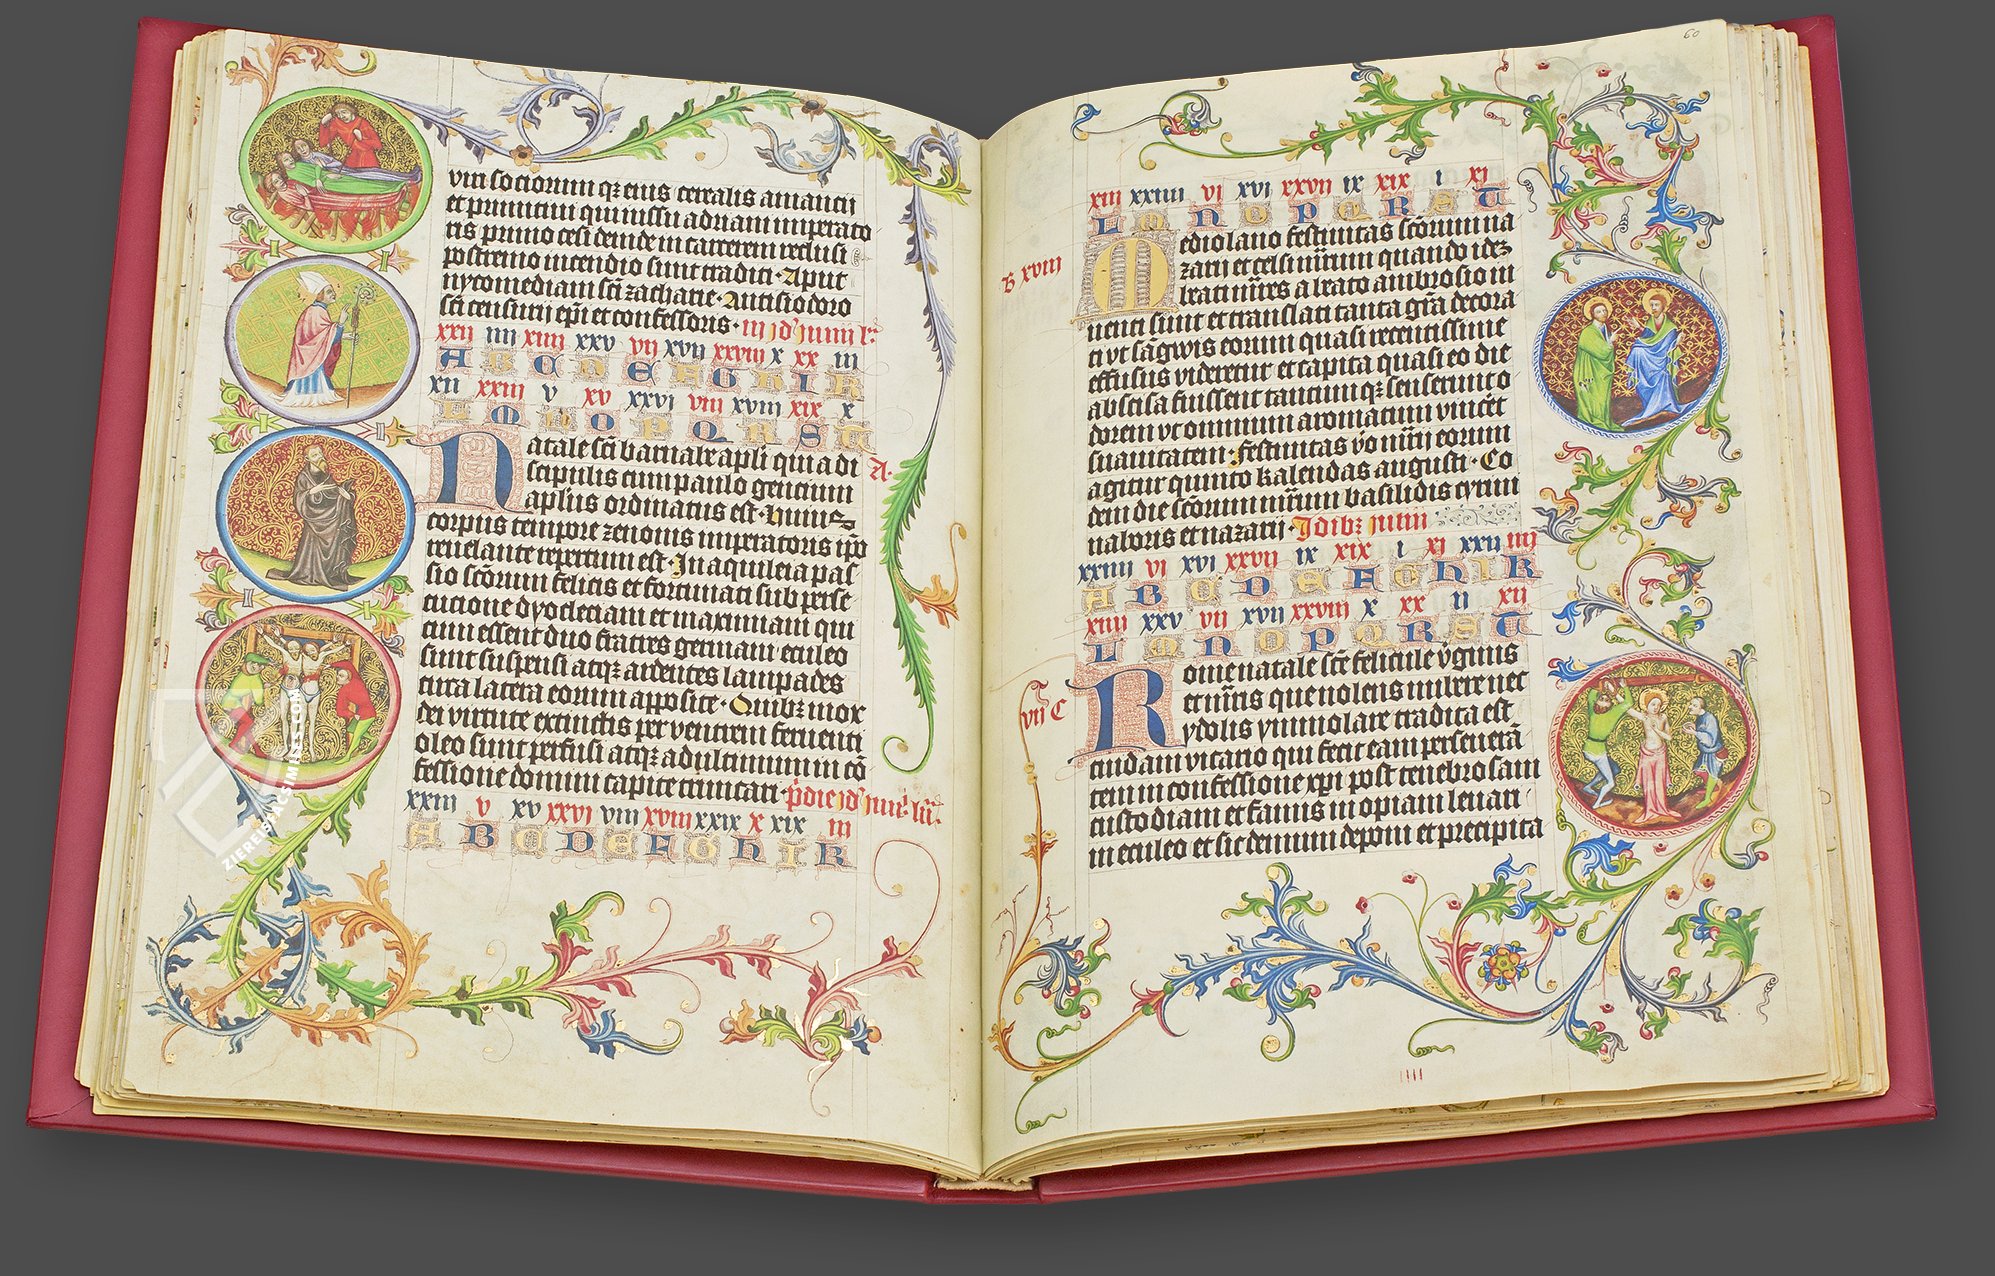 viri sociorum qz eius cerealis amancij
et primitiui qui iussu adriani imperato
ris primo cesi deinde in carcerem reclusi
postremo incendio sunt traditi · Aput
nycomediam scī zacharie · Antisiodoro
scī censurij ep̄i et confessoris · iij jd' junij l'
xxij iiij xiiij xxv vij xvij xxviij x xx iij
A B C D E F G H I K
xij xxiij v xv xxvi viij xviij xix x
L M N O P Q R S T
Natale scī barnabe ap̄li qui a di
scipulis cum paulo gencium
ap̄lus ordinatus est · huius
corpus tempore zenonis imperatoris ip̄o
reuelante repertum est · In aquileia pas
A.
sio scōrum felicis et fortunati sub perse
cucione dyocleciani et maximiani qui
cum essent duo fratres germani eculeo
sunt suspensi atqz ardentes lampades
circa latera eorum apposite · Quibz mox
dei virtute extinctis per ventrem feruenti
oleo sunt perfusi atqz ad ultimum in cō
fessione domini capite truncati · p̄die jd' jun̄ · lūᵃ
xxiij v xv xxvi viij xviij xxix x xix iij
A B C D E F G H I K
ZIEREIS FACSIMILES.COM
60
xiij xxiiij vi xvi xxvij ix xix i xi
L M N O P Q R S T
B xviij
Mediolano festiuitas scōrum na
zarij et celsi mr̄um quando idez
beati mr̄es a beato ambrosio in
uenti sunt et translati tanta gr̄a decora
ti vt sāgwis eorum quasi recentissime
effusus videretur et capita quasi eo die
abscisa fuissent tantumqz seu seruito
dorem vt omnium aromatum vincēt
suauitatem · festiuitas v̄o mr̄ij eorum
agitur quinto kalendas augusti · Eo
dem die scōrum mr̄um basilidis cyrini
naboris et nazarij · Jdibz junij
xxiiij vi xvi xxvij ix xix i xi xxij iiij
A B C D E F G H I K
xiiij xxv vij xvij xxviij x xx ij xij
L M N O P Q R S T
vij C
Rome natale scē felicule v̄ginis
et mr̄is que nolens nubere nec
ydolis ymmolare tradita est
cuidam vicario qui fecit eam perseuerā
tem in confessione xp̄i post tenebrosam
custodiam et famis in opiam leuari
in eculeo et sic demum deponi et precipita
iiii